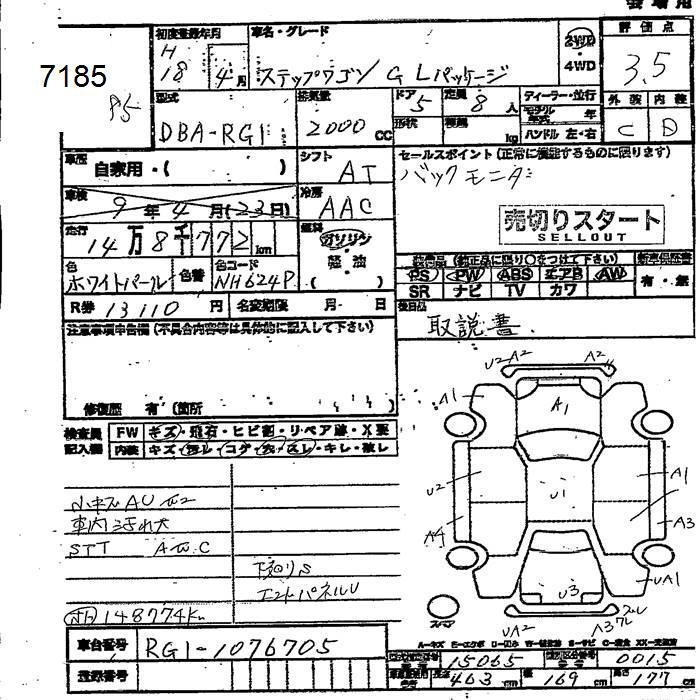 会場用
7185
初度登録年月 車名・グレード 2WD 4WD 評価点
H 18 4月 ステップワゴン G Lパッケージ 3.5
型式 排気量 ドア 定員 ディーラー・並行 外装 内装
DBA-RG1 2000 CC 5 8人 モデル年式 年 C D
形状 積載 kg ハンドル 左・右
車歴 自家用・( ) シフト AT セールスポイント(正常に機能するものに限ります)
バックモニター
車検 9年4月(23日) 冷房 AAC
売切りスタート
SELLOUT
走行 14万8千772km 燃料 ガソリン 軽油 ( )
装備品(純正品に限り○をつけて下さい) 新車保証書
PS PW ABS エアB AW 有・無
SR ナビ TV カワ
色 ホワイトパール 色番 色コード NH624P
R券 13110円 名変期限 月 日
後日品 取説書
注意事項申告欄(不具合内容等は具体的に記入して下さい)
修復歴 有(箇所 )
検査員 FW キズ・飛石・ヒビ割・リペア跡・X要
記入欄 内装 キズ・汚レ・コゲ・穴・スレ・キレ・破レ
U2 A2 A2
A1 A1
U2 U1 A1
A4 A3
U3 UA1
UA2 A3
スペア
小キズAU
車内汚れ大
STT
下廻りS
エンドパネルU
148774Km
A=キズ E=エクボ U=凹み W=補修跡 S=サビ C=腐食 XX=交換済
車台番号 RG1-1076705
型式指定番号 15065 類別区分番号 0015
登録番号
長さ 463cm 幅 169cm 高さ 177cm